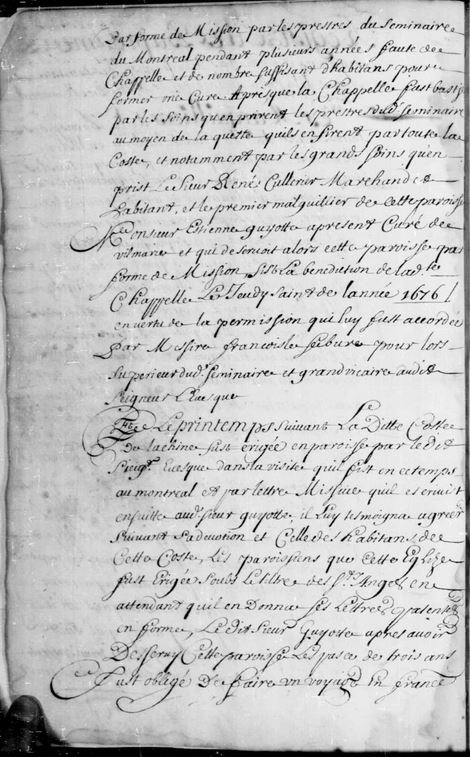 Par forme de Mission par les prestres du Seminaire
du Montreal pendant plusieurs années faute de
Chappelle et de nombre suffisant d'habitans pour
former une Cure Apres que la Chappelle fust bastie
par les soins qu'en prirent les prestres dud. seminaire
au moyen de la queste quils en firent par toute la
Coste, et notamment par les grands soins qu'en
prist Le Sieur René Cullerier Marchand et
habitant, et le premier marguillier de cette paroisse
Monsieur Etienne guyotte apresent Curé de
vilmarie et qui desservoit alors cette paroisse par
forme de Mission, fist La benediction de lad.te
Chappelle Le Jeudy Saint de l'année 1676
en vertu de la permission qui luy fust accordée
Par Messire francois le febure pour lors
Superieur dud. seminaire et grand vicaire audit
Seigneur Evesque
Le printemps suivant La Ditte Coste
De lachine fust erigée en paroisse par le dit
Seig.r Evesque dans la visite qu'il fist en ce temps
au montreal et par lettre Missive quil escrivit
ensuitte aud. sieur guyotte, il luy tesmoigna agréer
suivant sa devotion et Celle des habitans de
Cette Coste, Les paroissiens que cette Eglise
fust Erigée soubs le tiltre des S.ts Anges en
attendant qu'il en Donne ses Lettres patentes
en forme, Le dit Sieur Guyotte apres avoir
Desservy Cette paroisse Lespace de trois ans
fust obligé De faire un voyage En france